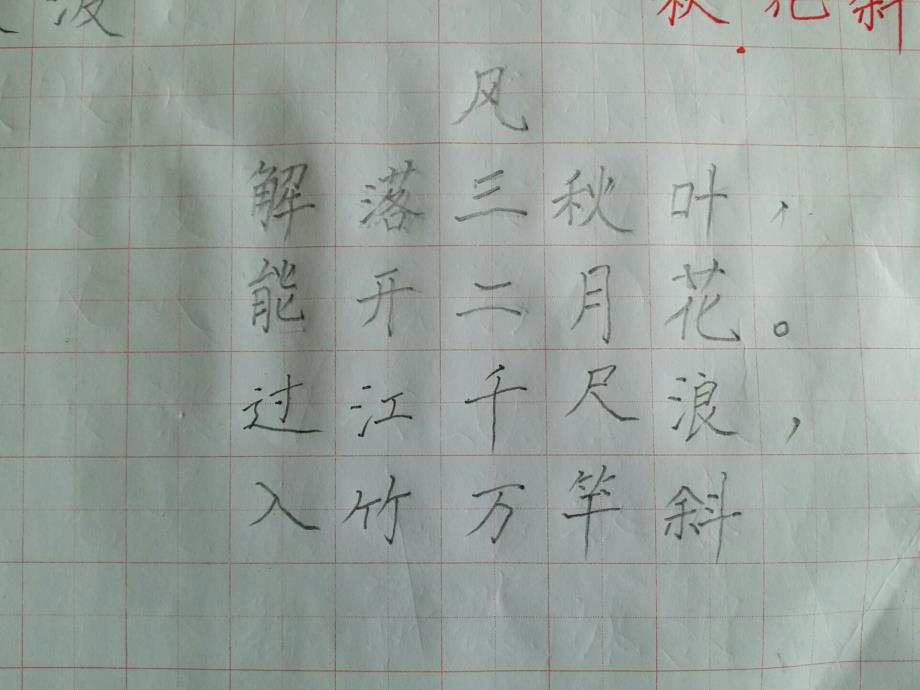 秋 花 斜
风
解落三秋叶，
能开二月花。
过江千尺浪，
入竹万竿斜